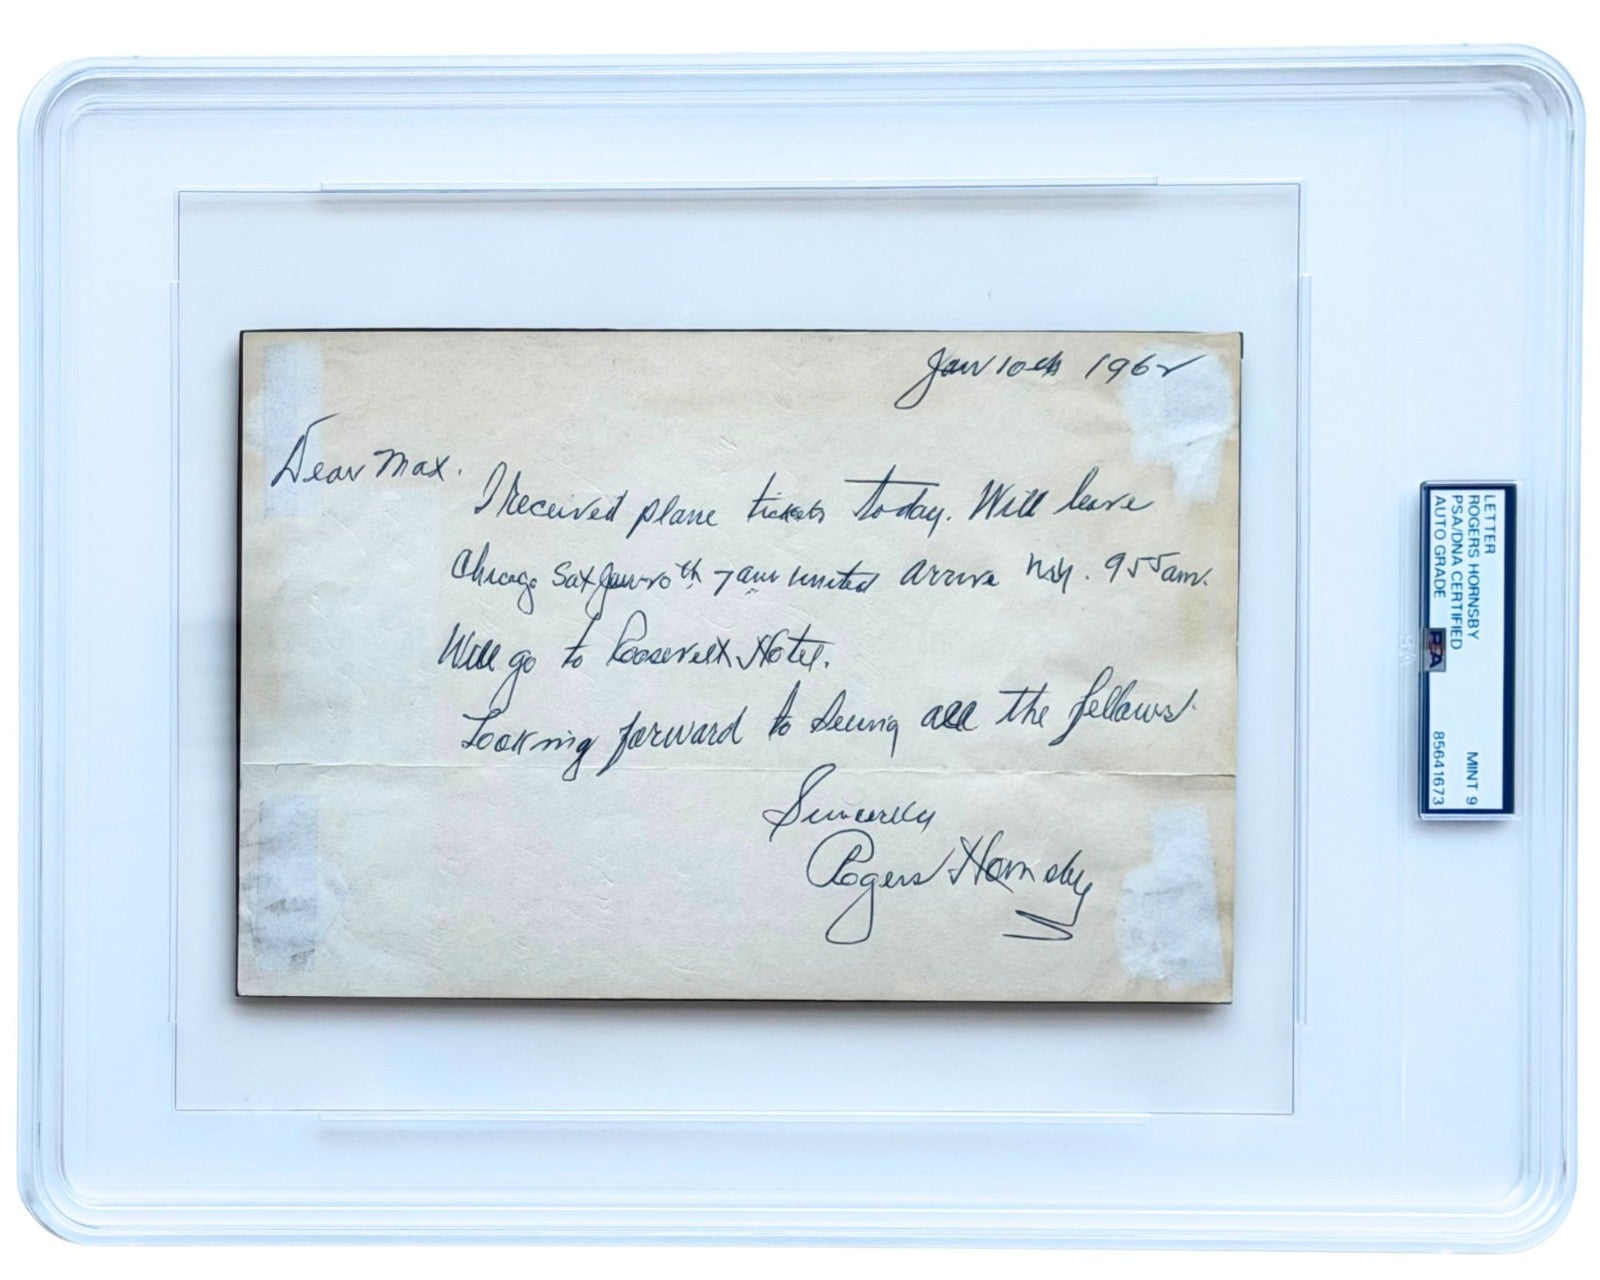 Jan 10th 1962
Dear Max.
I received plane tickets today. Will leave
Chicago Sat Jan 20th, 7 am United arrive N.Y. 955 am.
Will go to Roosevelt Hotel.
Looking forward to seeing all the fellows.
Sincerely
Rogers Hornsby
LETTER
ROGERS HORNSBY
PSA/DNA CERTIFIED
AUTO GRADE
MINT 9
85641673
PSA